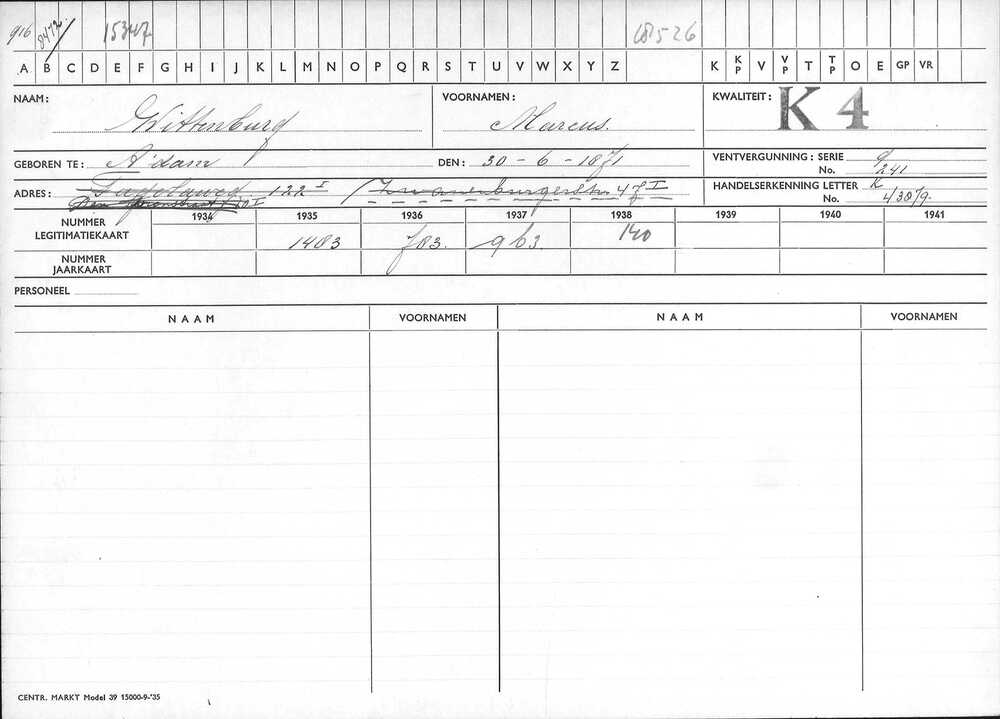 916 8472 15347
A B C D E F G H I J K L M N O P Q R S T U V W X Y Z K KP V VP T TP O E GP VR
NAAM: Wittenburg VOORNAMEN: Marcus. KWALITEIT: K 4
GEBOREN TE: A'dam DEN: 30-6-1871 VENTVERGUNNING: SERIE 9
No. 241
ADRES: 122 I / Zwanenburgerstr. 47 I HANDELSERKENNING LETTER K
No. 4/3879.
1934 1935 1936 1937 1938 1939 1940 1941
NUMMER LEGITIMATIEKAART 1483 783. 963. 140
NUMMER JAARKAART
PERSONEEL
NAAM VOORNAMEN NAAM VOORNAMEN
CENTR. MARKT Model 39 15000-9-'35